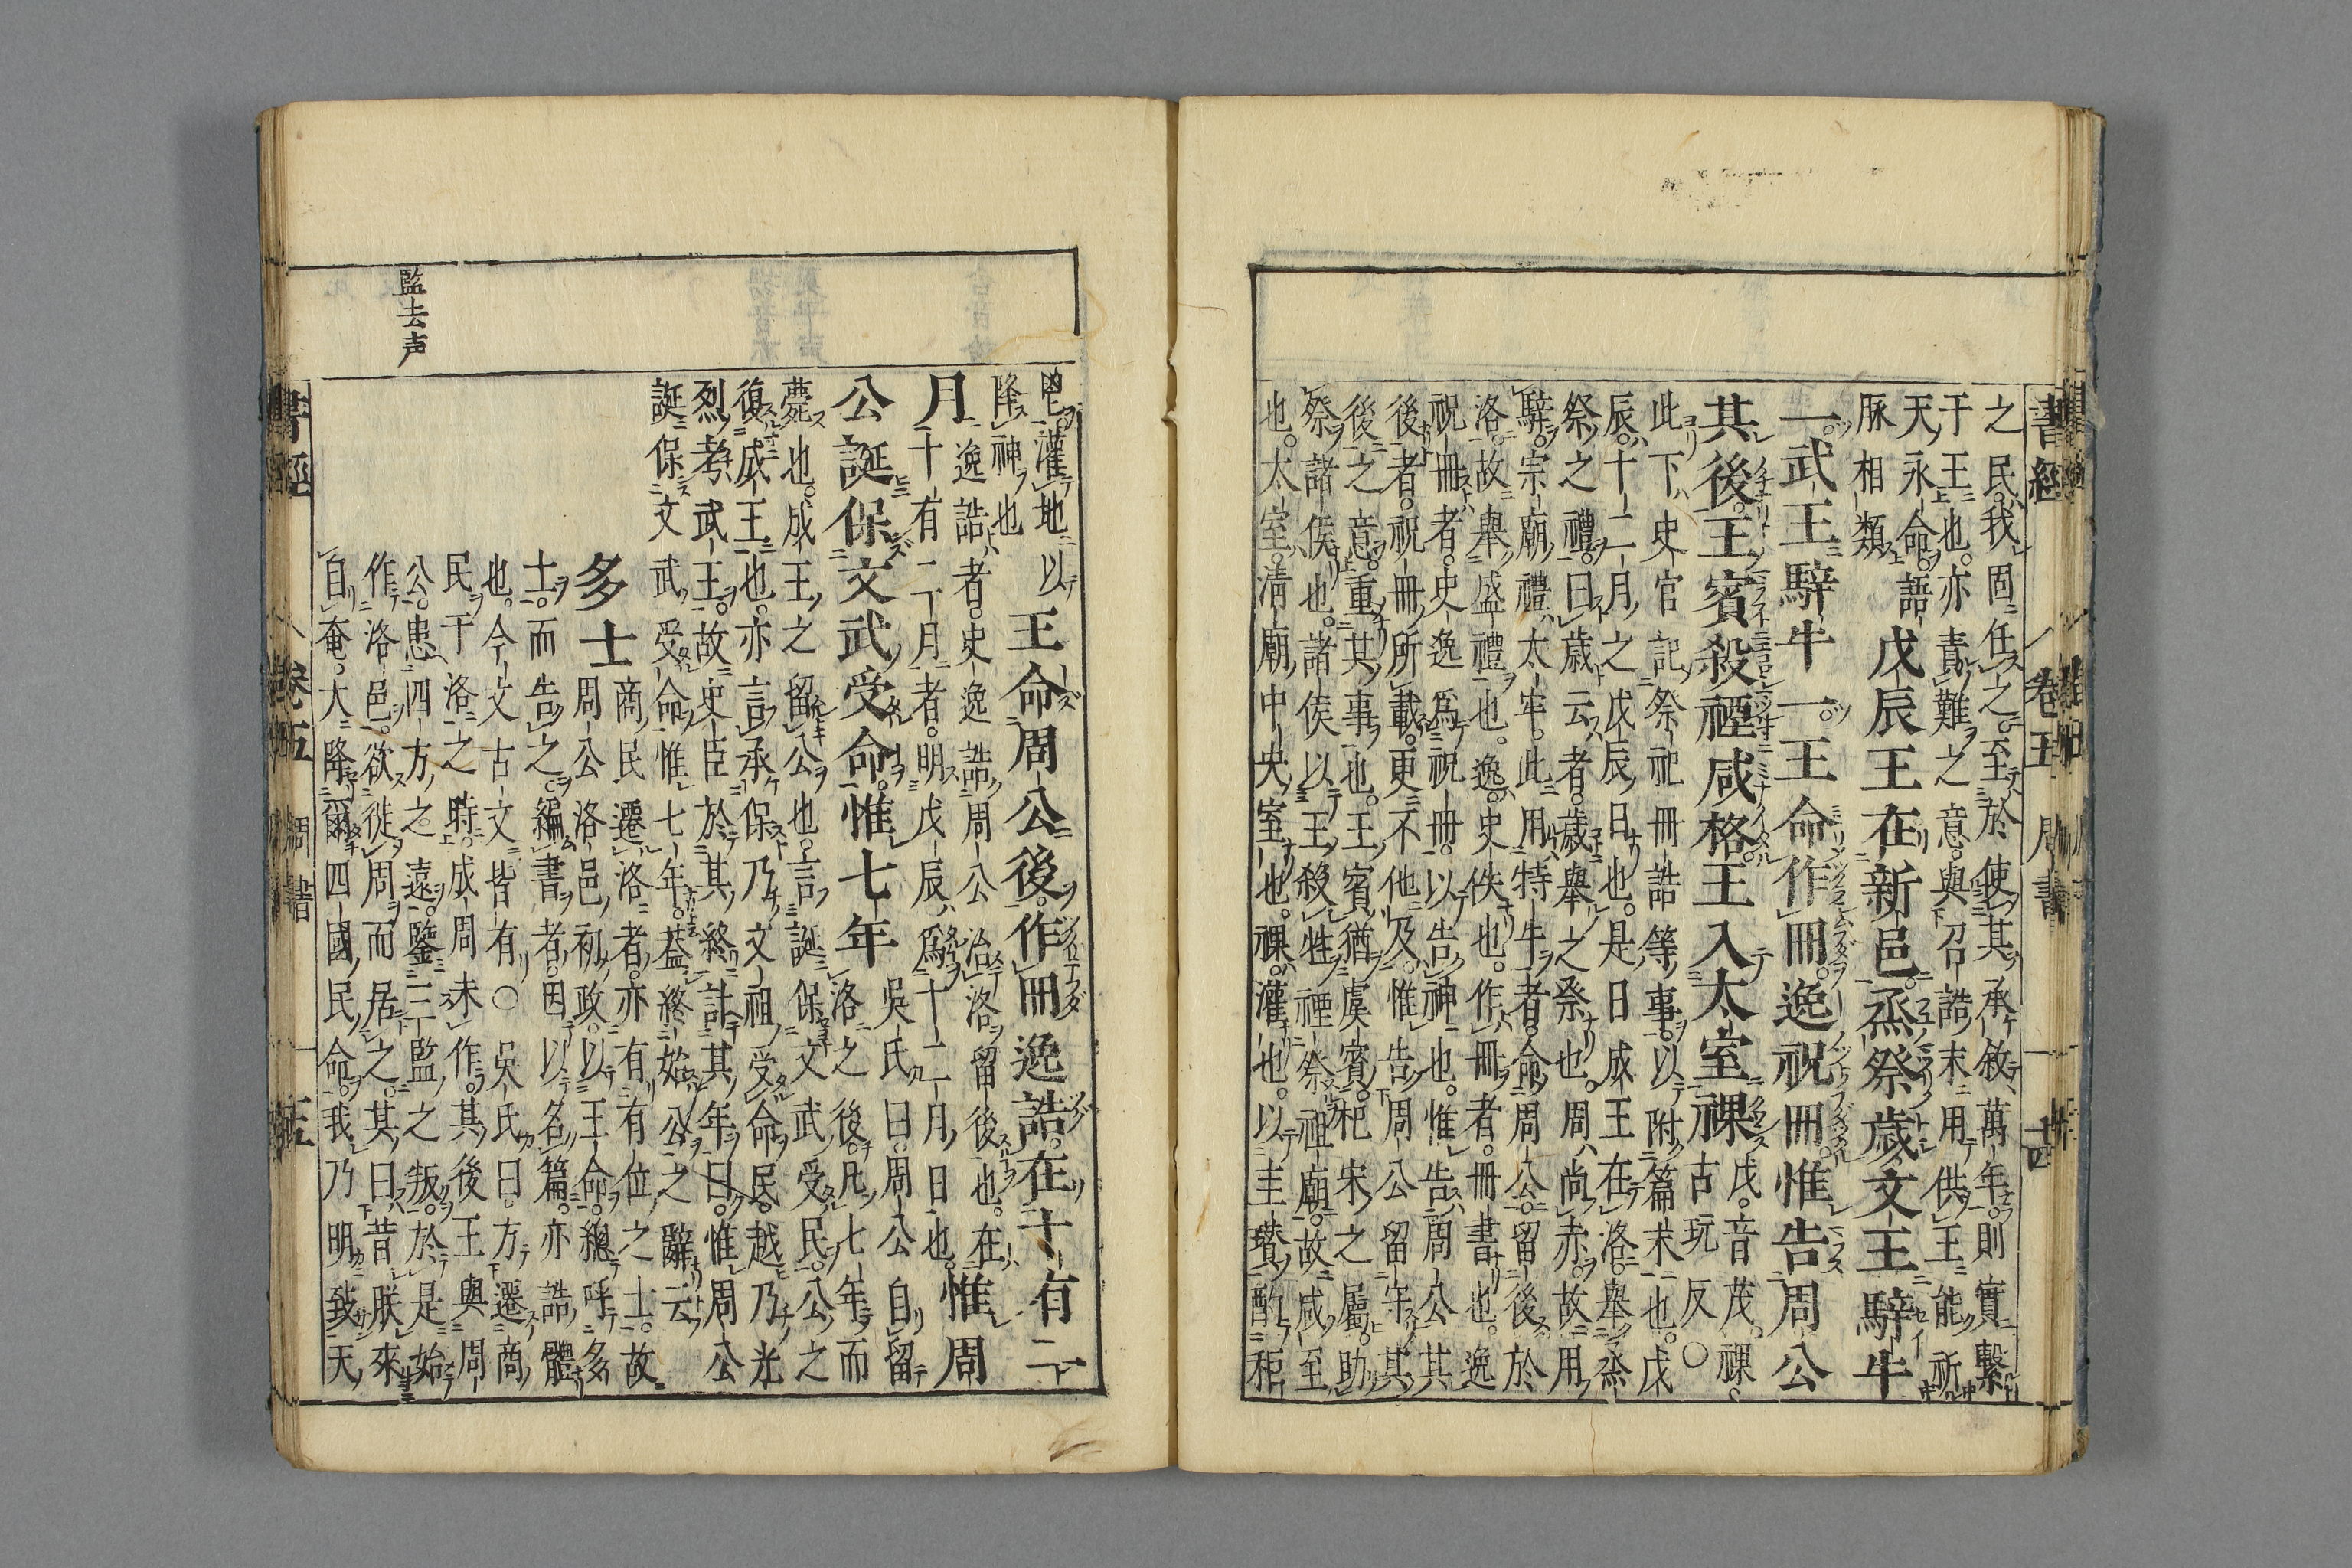 書經　卷五　周書　十四
之民。我固任之。至於使其承敘萬年。則實繫
于王也。亦責難之意。與召誥末用供王能祈
天永命語
脉相類
戊辰王在新邑。烝祭歲。文王騂牛
一。武王騂牛一。王命作冊。逸祝冊惟告周公
其後。王賓殺禋咸格。王入太室祼
戊。音茂。祼
古玩反○
此下史官記祭祀冊誥等事。以附篇末也。戊
辰。十二月之戊辰日也。是日成王在洛。舉烝
祭之禮。曰歲云者。歲舉之祭也。周尚赤。故用
騂。宗廟禮太牢。此用特牛者。命周公留後於
洛。故舉盛禮也。逸。史佚也。作冊者。冊書也。逸
祝冊者。史逸爲祝冊。以告神也。惟告周公其
後者。祝冊所載。更不他及。惟告周公留守其
後之意。重其事也。王賓猶虞賓。杞宋之屬。助
祭諸侯也。諸侯以王殺牲禋祭祖廟。故咸至
也。太室。淸廟中央室也。祼。灌也。以圭瓚酌秬
鬯灌地以
降神也
王命周公後。作冊逸誥。在十有二
月
逸誥者。史逸誥周公治洛留後也。在
十有二月者。明戊辰爲十二月日也。
惟周
公誕保文武受命。惟七年
吳氏曰。周公自留
洛之後。凡七年而
薨也。成王之留公也。言誕保文武受民。公之
復成王也。亦言承保乃文祖受命民。越乃光
烈考武王。故史臣於其終計其年曰。惟周公
誕保文武受命惟七年。蓋終始公之辭云
多士
商民遷洛者。亦有有位之士。故
周公洛邑初政。以王命總呼多
士。而告之。編書者。因以名篇。亦誥體
也。今文古文皆有○吳氏曰。方遷商
民于洛之時。成周未作。其後王與周
公。患四方之遠。鑒三監之叛。於是始
作洛邑。欲徙周而居之。其曰昔朕來
自奄。大降爾四國民命。我乃明致天
監去声
書經　卷五　周書　十五